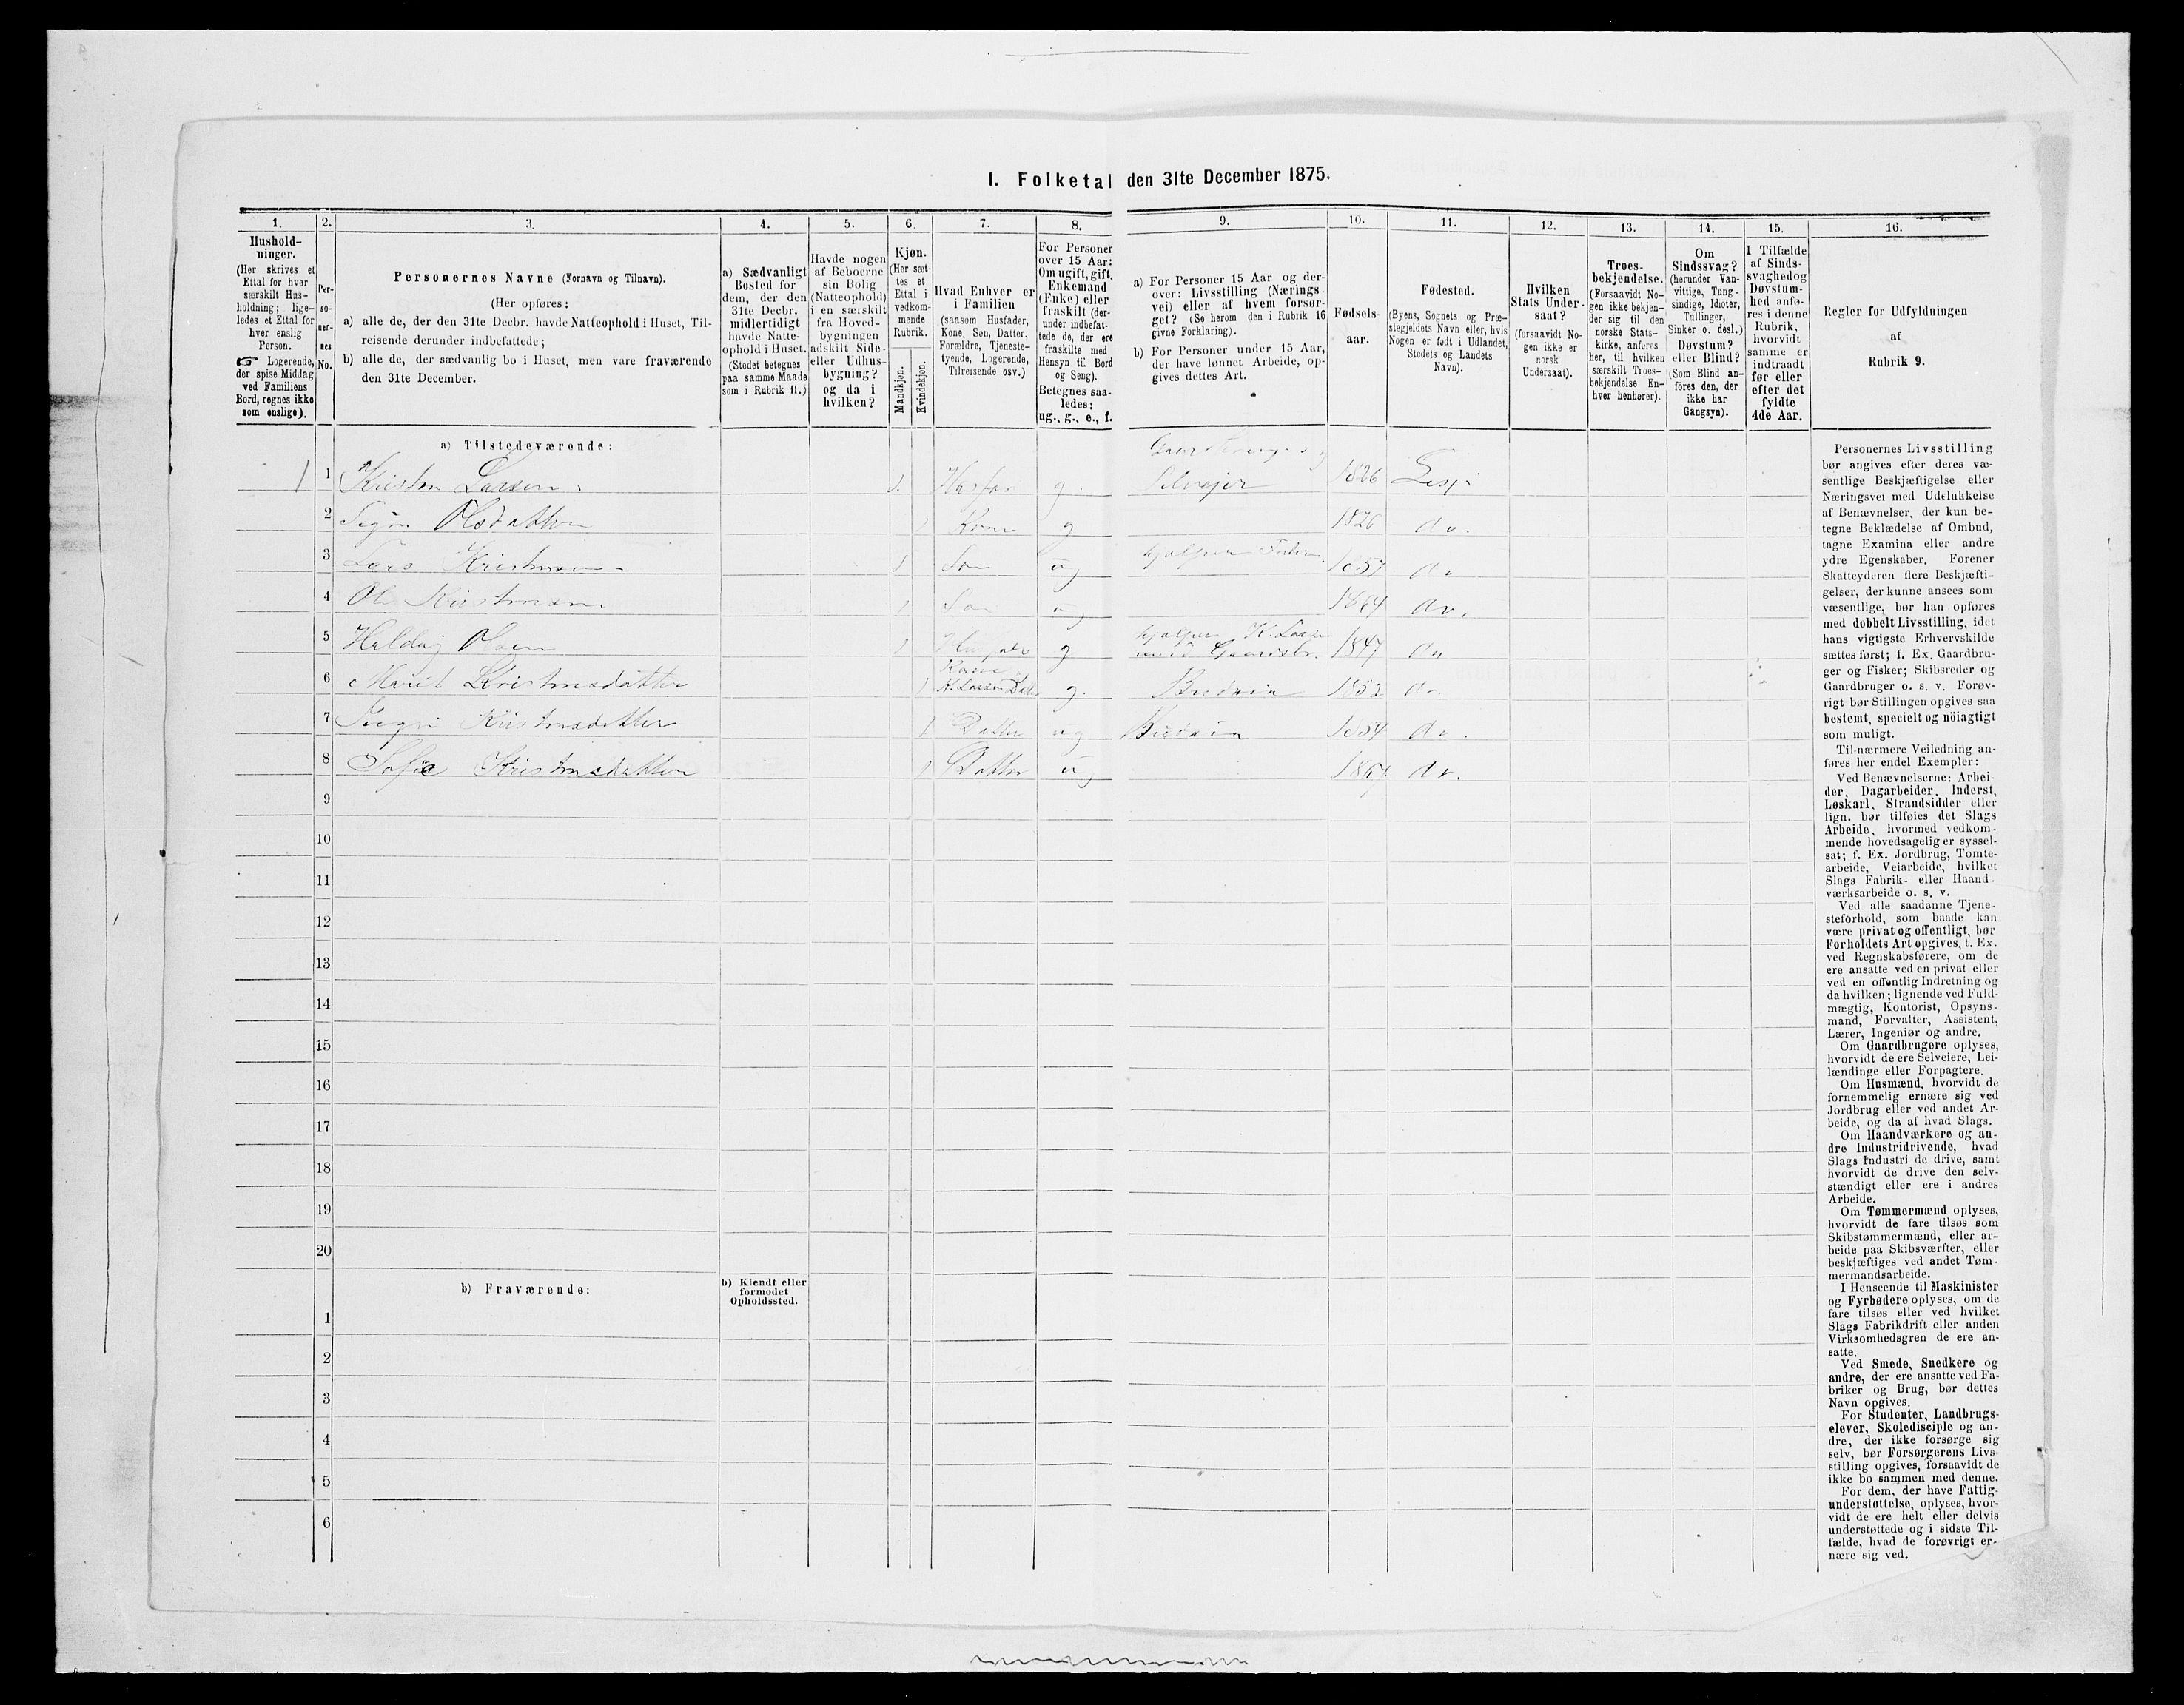 I. Folketal den 31te December 1875.
1.
Hushold-
ninger.
(Her skrives et
Ettal for hver
særskilt Hus-
holdning; lige-
ledes et Ettal for
hver enslig
Person.
☞ Logerende,
der spise Middag
ved Familiens
Bord, regnes ikke
som enslige).
2.
Per-
so-
ner-
nes
No.
3.
Personernes Navne (Fornavn og Tilnavn).
(Her opføres:
a) alle de, der den 31te Decbr. havde Natteophold i Huset, Til-
reisende derunder indbefattede;
b) alle de, der sædvanlig bo i Huset, men vare fraværende
den 31te December.
4.
a) Sædvanligt
Bosted for
dem, der den
31te Decbr.
midlertidigt
havde Natte-
ophold i Huset.
(Stedet betegnes
paa samme Maade
som i Rubrik 11.)
5.
Havde nogen
af Beboerne
sin Bolig
(Natteophold)
i en særskilt
fra Hoved-
bygningen
adskilt Side-
eller Udhus-
bygning?
og da i
hvilken?
6.
Kjøn.
(Her sæt-
tes et
Ettal i
vedkom-
mende
Rubrik.
Mandkjøn.
Kvindekjøn.
7.
Hvad Enhver er
i Familien
(saasom Husfader,
Kone, Søn, Datter,
Forældre, Tjeneste-
tyende, Logerende,
Tilreisende osv.)
8.
For Personer
over 15 Aar:
Om ugift, gift,
Enkemand
(Enke) eller
fraskilt (der-
under indbefat-
tede de, der ere
fraskilte med
Hensyn til Bord
og Seng).
Betegnes saa-
ledes:
ug., g., e., f.
9.
a) For Personer 15 Aar og der-
over: Livsstilling (Nærings
vei) eller af hvem forsør-
get? (Se herom den i Rubrik 16
givne Forklaring).
b) For Personer under 15 Aar,
der have lønnet Arbeide, op-
gives dettes Art.
10.
Fødsels-
aar.
11.
Fødested.
(Byens, Sognets og Præ-
stegjeldets Navn eller, hvis
Nogen er født i Udlandet,
Stedets og Landets
Navn).
12.
Hvilken
Stats Under-
saat?
(forsaavidt No-
gen ikke er
norsk
Undersaat).
13.
Troes-
bekjendelse.
(Forsaavidt No-
gen ikke bekjen-
der sig til den
norske Stats-
kirke, anføres
her, til hvilken
særskilt Troes-
bekjendelse En-
hver henhører).
14.
Om
Sindssvag?
(herunder Van-
vittige, Tung-
sindige, Idioter,
Tullinger,
Sinker o. desl.)
Døvstum?
eller Blind?
(Som Blind an-
føres den, der
ikke har
Gangsyn).
15.
I Tilfælde
af Sinds-
svaghed og
Døvstum-
hed anfø-
res i denne
Rubrik,
hvorvidt
samme er
indtraadt
før eller
efter det
fyldte
4de Aar.
16.
Regler for Udfyldningen
af
Rubrik 9.
a) Tilstedeværende:
1 1 Kristen Larsen 1. Husfar g. Selvejer 1826 Lesje
2 Olsdatter 1 Kone g 1826 do.
3 Lars Kristensen 1 Søn ug hjælper Faderen 1857 do
4 Ole Kristensen 1 Søn ug 1864 do.
5 Haldog Olsen 1 g hjælper K. Larsen 1847 do
med Gaardsbr.
6 Marit Kristensdatter 1 Kone K. Larsen Dat. g. Budeia 1852 do.
7 Ingri Kristensdatter 1 Datter ug Budeia 1854 do.
8 Sofie Kristensdatter 1 Datter ug do.
9
10
11
12
13
14
15
16
17
18
19
20
b) Fraværende:
b) Kjendt eller
formodet
Opholdssted.
1
2
3
4
5
6
Personernes Livsstilling
bør angives efter deres væ-
sentlige Beskjæftigelse eller
Næringsvei med Udelukkelse
af Benævnelser, der kun be-
tegne Beklædelse af Ombud,
tagne Examina eller andre
ydre Egenskaber. Forener
Skatteyderen flere Beskjæfti-
gelser, der kunne ansees som
væsentlige, bør han opføres
med dobbelt Livsstilling, idet
hans vigtigste Erhvervskilde
sættes først; f. Ex. Gaardbru-
ger og Fisker; Skibsreder og
Gaardbruger o. s. v. Forøv-
rigt bør Stillingen opgives saa
bestemt, specielt og nöiagtigt
som muligt.
Til nærmere Veiledning an-
føres her endel Exempler:
Ved Benævnelserne: Arbei-
der, Dagarbeider, Inderst,
Løskarl, Strandsidder eller
lign. bør tilføies det Slags
Arbeide, hvormed vedkom-
mende hovedsagelig er syssel-
sat; f. Ex. Jordbrug, Tomte-
arbeide, Veiarbeide, hvilket
Slags Fabrik- eller Haand-
værksarbeide o. s. v.
Ved alle saadanne Tjene-
steforhold, som baade kan
være privat og offentligt, bør
Forholdets Art opgives, t. Ex.
ved Regnskabsførere, om de
ere ansatte ved en privat eller
ved en offentlig Indretning og
da hvilken; lignende ved Fuld-
mægtig, Kontorist, Opsyns-
mand, Forvalter, Assistent,
Lærer, Ingeniør og andre.
Om Gaardbrugere oplyses,
hvorvidt de ere Selveiere, Lei-
lændinge eller Forpagtere.
Om Husmænd, hvorvidt de
fornemmelig ernære sig ved
Jordbrug eller ved andet Ar-
beide, og da af hvad Slags.
Om Haandværkere og an-
dre Industridrivende, hvad
Slags Industri de drive, samt
hvorvidt de drive den selv-
stændigt eller ere i andres
Arbeide.
Om Tømmermænd oplyses,
hvorvidt de fare tilsøs som
Skibstømmermænd, eller ar-
beide paa Skibsværfter, eller
beskjæftiges ved andet Tøm-
mermandsarbeide.
I Henseende til Maskinister
og Fyrbødere oplyses, om de
fare tilsøs eller ved hvilket
Slags Fabrikdrift eller anden
Virksomhedsgren de ere an-
satte.
Ved Smede, Snedkere og
andre, der ere ansatte ved Fa-
briker og Brug, bør dettes
Navn opgives.
For Studenter, Landbrugs-
elever, Skoledisciple og an-
dre, der ikke forsørge sig
selv, bør Forsørgerens Livs-
stilling opgives, forsaavidt de
ikke bo sammen med denne.
For dem, der have Fattig-
understøttelse, oplyses, hvor-
vidt de ere helt eller delvis
understøttede og i sidste Til-
fælde, hvad de forøvrigt er-
nære sig ved.